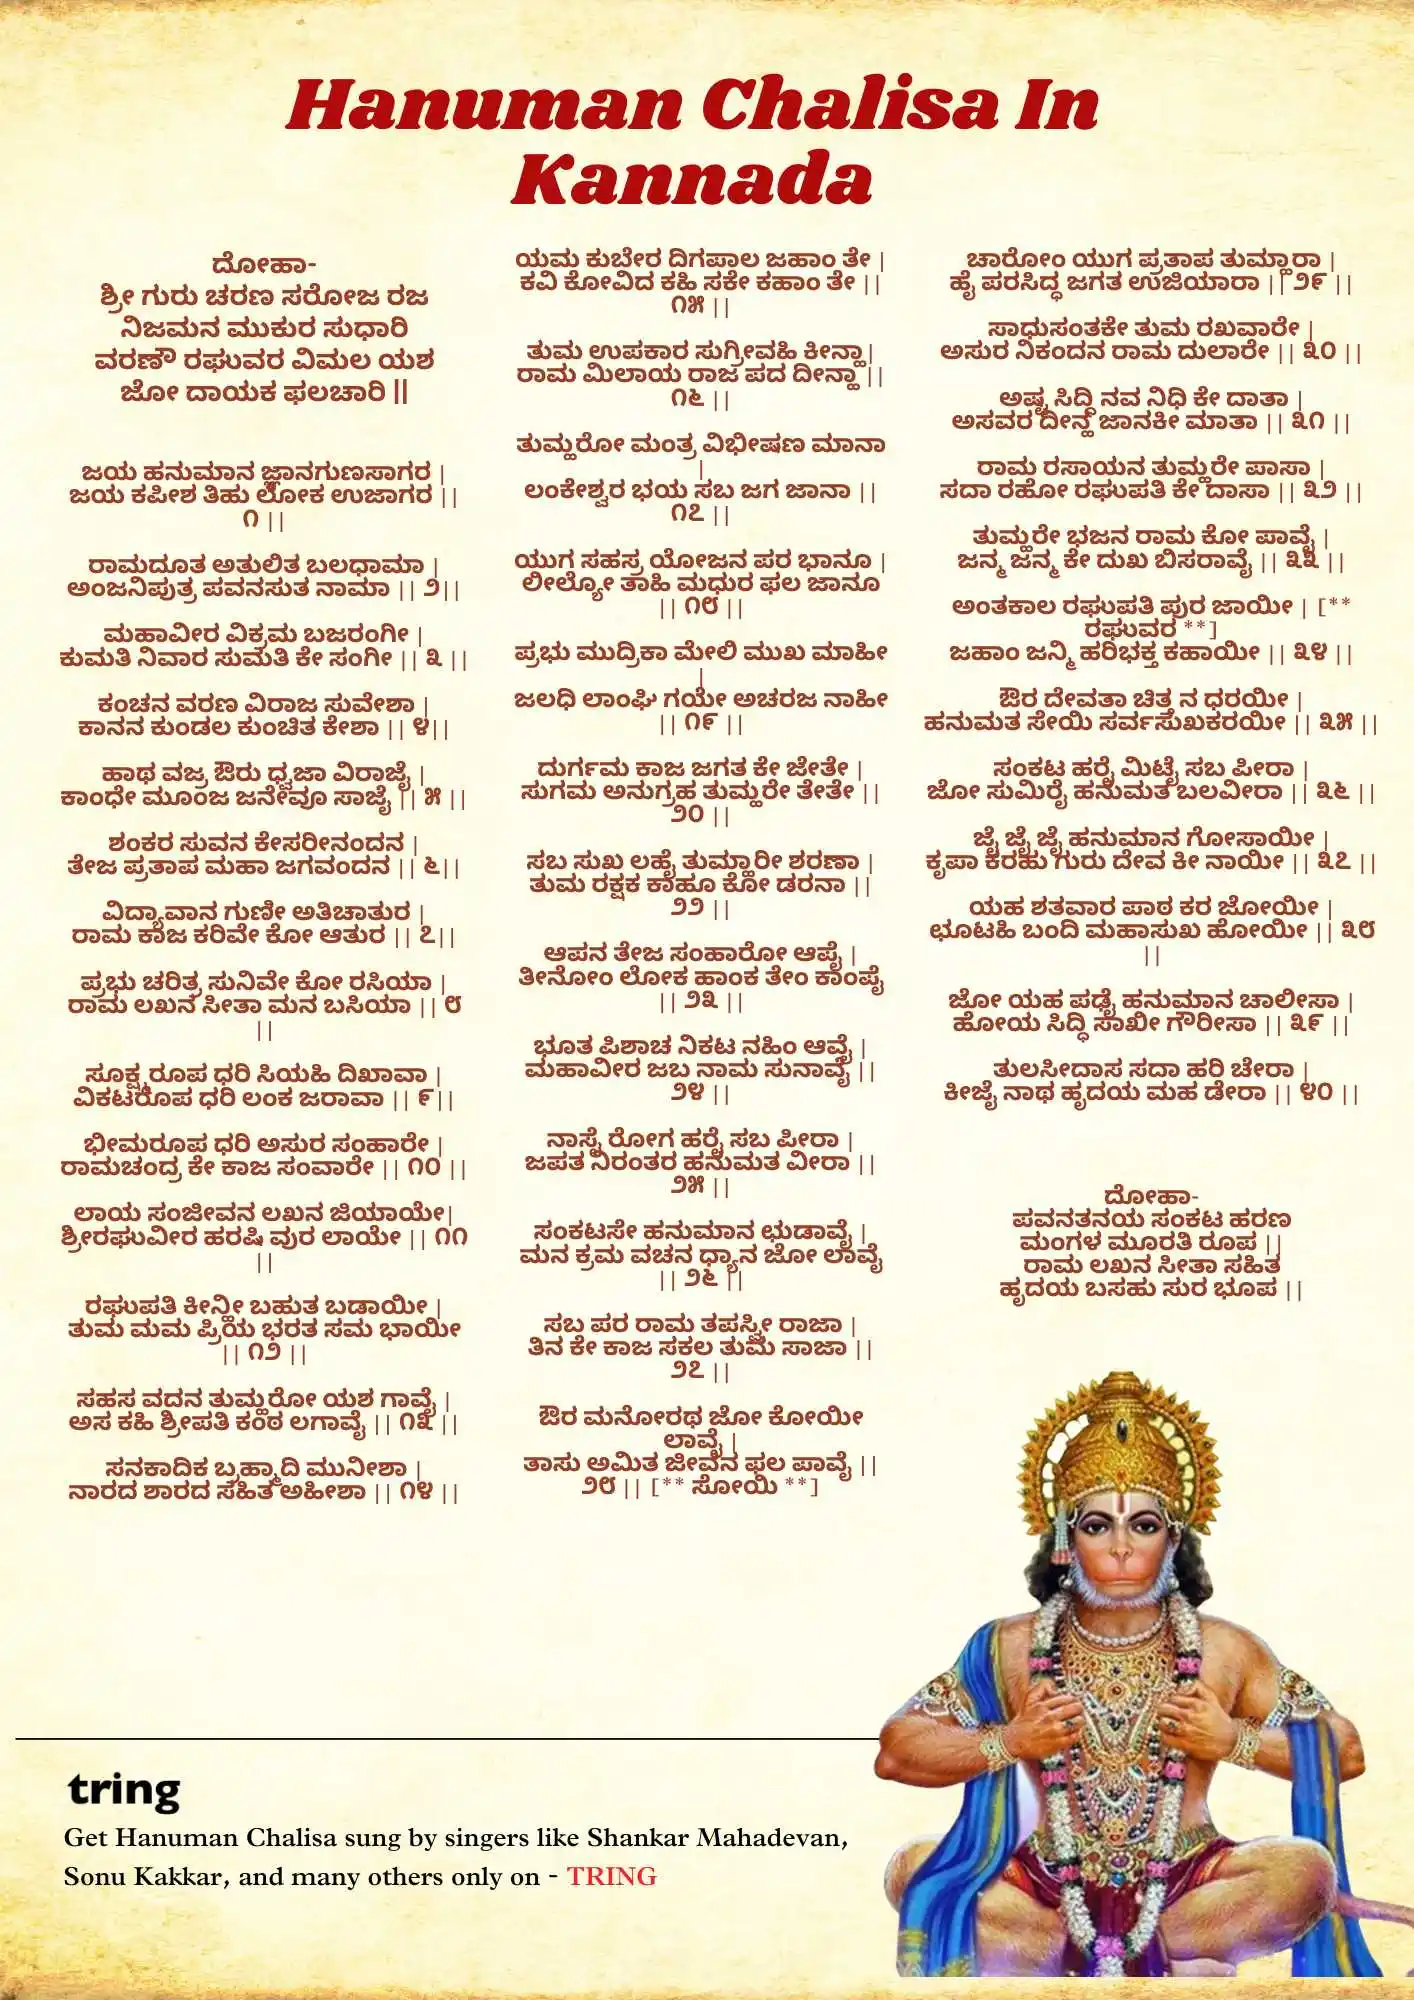 Hanuman Chalisa In
Kannada
ದೋಹಾ-
ಶ್ರೀ ಗುರು ಚರಣ ಸರೋಜ ರಜ
ನಿಜಮನ ಮುಕುರ ಸುಧಾರಿ
ವರಣೌ ರಘುವರ ವಿಮಲ ಯಶ
ಜೋ ದಾಯಕ ಫಲಚಾರಿ ||
ಜಯ ಹನುಮಾನ ಜ್ಞಾನಗುಣಸಾಗರ |
ಜಯ ಕಪೀಶ ತಿಹು ಲೋಕ ಉಜಾಗರ ||
೧ ||
ರಾಮದೂತ ಅತುಲಿತ ಬಲಧಾಮಾ |
ಅಂಜನಿಪುತ್ರ ಪವನಸುತ ನಾಮಾ || ೨||
ಮಹಾವೀರ ವಿಕ್ರಮ ಬಜರಂಗೀ |
ಕುಮತಿ ನಿವಾರ ಸುಮತಿ ಕೇ ಸಂಗೀ || ೩ ||
ಕಂಚನ ವರಣ ವಿರಾಜ ಸುವೇಶಾ |
ಕಾನನ ಕುಂಡಲ ಕುಂಚಿತ ಕೇಶಾ || ೪||
ಹಾಥ ವಜ್ರ ಔರು ಧ್ವಜಾ ವಿರಾಜೈ |
ಕಾಂಧೇ ಮೂಂಜ ಜನೇವೂ ಸಾಜೈ || ೫ ||
ಶಂಕರ ಸುವನ ಕೇಸರೀನಂದನ |
ತೇಜ ಪ್ರತಾಪ ಮಹಾ ಜಗವಂದನ || ೬||
ವಿದ್ಯಾವಾನ ಗುಣೀ ಅತಿಚಾತುರ |
ರಾಮ ಕಾಜ ಕರಿವೇ ಕೋ ಆತುರ || ೭||
ಪ್ರಭು ಚರಿತ್ರ ಸುನಿವೇ ಕೋ ರಸಿಯಾ |
ರಾಮ ಲಖನ ಸೀತಾ ಮನ ಬಸಿಯಾ || ೮
||
ಸೂಕ್ಷ್ಮರೂಪ ಧರಿ ಸಿಯಹಿ ದಿಖಾವಾ |
ವಿಕಟರೂಪ ಧರಿ ಲಂಕ ಜರಾವಾ || ೯||
ಭೀಮರೂಪ ಧರಿ ಅಸುರ ಸಂಹಾರೇ |
ರಾಮಚಂದ್ರ ಕೇ ಕಾಜ ಸಂವಾರೇ || ೧೦ ||
ಲಾಯ ಸಂಜೀವನ ಲಖನ ಜಿಯಾಯೇ|
ಶ್ರೀರಘುವೀರ ಹರಷಿ ವುರ ಲಾಯೇ || ೧೧
||
ರಘುಪತಿ ಕೀನ್ಹೀ ಬಹುತ ಬಡಾಯೀ |
ತುಮ ಮಮ ಪ್ರಿಯ ಭರತ ಸಮ ಭಾಯೀ
|| ೧೨ ||
ಸಹಸ ವದನ ತುಮ್ಹರೋ ಯಶ ಗಾವೈ |
ಅಸ ಕಹಿ ಶ್ರೀಪತಿ ಕಂಠ ಲಗಾವೈ || ೧೩ ||
ಸನಕಾದಿಕ ಬ್ರಹ್ಮಾದಿ ಮುನೀಶಾ |
ನಾರದ ಶಾರದ ಸಹಿತ ಅಹೀಶಾ || ೧೪ ||
ಯಮ ಕುಬೇರ ದಿಗಪಾಲ ಜಹಾಂ ತೇ |
ಕವಿ ಕೋವಿದ ಕಹಿ ಸಕೇ ಕಹಾಂ ತೇ ||
೧೫ ||
ತುಮ ಉಪಕಾರ ಸುಗ್ರೀವಹಿ ಕೀನ್ಹಾ|
ರಾಮ ಮಿಲಾಯ ರಾಜ ಪದ ದೀನ್ಹಾ ||
೧೬ ||
ತುಮ್ಹರೋ ಮಂತ್ರ ವಿಭೀಷಣ ಮಾನಾ
|
ಲಂಕೇಶ್ವರ ಭಯ ಸಬ ಜಗ ಜಾನಾ ||
೧೭ ||
ಯುಗ ಸಹಸ್ರ ಯೋಜನ ಪರ ಭಾನೂ |
ಲೀಲ್ಯೋ ತಾಹಿ ಮಧುರ ಫಲ ಜಾನೂ
|| ೧೮ ||
ಪ್ರಭು ಮುದ್ರಿಕಾ ಮೇಲಿ ಮುಖ ಮಾಹೀ
|
ಜಲಧಿ ಲಾಂಘಿ ಗಯೇ ಅಚರಜ ನಾಹೀ
|| ೧೯ ||
ದುರ್ಗಮ ಕಾಜ ಜಗತ ಕೇ ಜೇತೇ |
ಸುಗಮ ಅನುಗ್ರಹ ತುಮ್ಹರೇ ತೇತೇ ||
೨೦ ||
ಸಬ ಸುಖ ಲಹೈ ತುಮ್ಹಾರೀ ಶರಣಾ |
ತುಮ ರಕ್ಷಕ ಕಾಹೂ ಕೋ ಡರನಾ ||
೨೨ ||
ಆಪನ ತೇಜ ಸಂಹಾರೋ ಆಪೈ |
ತೀನೋಂ ಲೋಕ ಹಾಂಕ ತೇಂ ಕಾಂಪೈ
|| ೨೩ ||
ಭೂತ ಪಿಶಾಚ ನಿಕಟ ನಹಿಂ ಆವೈ |
ಮಹಾವೀರ ಜಬ ನಾಮ ಸುನಾವೈ ||
೨೪ ||
ನಾಸೈ ರೋಗ ಹರೈ ಸಬ ಪೀರಾ |
ಜಪತ ನಿರಂತರ ಹನುಮತ ವೀರಾ ||
೨೫ ||
ಸಂಕಟಸೇ ಹನುಮಾನ ಛುಡಾವೈ |
ಮನ ಕ್ರಮ ವಚನ ಧ್ಯಾನ ಜೋ ಲಾವೈ
|| ೨೬ ||
ಸಬ ಪರ ರಾಮ ತಪಸ್ವೀ ರಾಜಾ |
ತಿನ ಕೇ ಕಾಜ ಸಕಲ ತುಮ ಸಾಜಾ ||
೨೭ ||
ಔರ ಮನೋರಥ ಜೋ ಕೋಯೀ
ಲಾವೈ |
ತಾಸು ಅಮಿತ ಜೀವನ ಫಲ ಪಾವೈ ||
೨೮ || [** ಸೋಯಿ **]
ಚಾರೋಂ ಯುಗ ಪ್ರತಾಪ ತುಮ್ಹಾರಾ |
ಹೈ ಪರಸಿದ್ಧ ಜಗತ ಉಜಿಯಾರಾ || ೨೯ ||
ಸಾಧುಸಂತಕೇ ತುಮ ರಖವಾರೇ |
ಅಸುರ ನಿಕಂದನ ರಾಮ ದುಲಾರೇ || ೩೦ ||
ಅಷ್ಟ ಸಿದ್ಧಿ ನವ ನಿಧಿ ಕೇ ದಾತಾ |
ಅಸವರ ದೀನ್ಹ ಜಾನಕೀ ಮಾತಾ || ೩೧ ||
ರಾಮ ರಸಾಯನ ತುಮ್ಹರೇ ಪಾಸಾ |
ಸದಾ ರಹೋ ರಘುಪತಿ ಕೇ ದಾಸಾ || ೩೨ ||
ತುಮ್ಹರೇ ಭಜನ ರಾಮ ಕೋ ಪಾವೈ |
ಜನ್ಮ ಜನ್ಮ ಕೇ ದುಖ ಬಿಸರಾವೈ || ೩೩ ||
ಅಂತಕಾಲ ರಘುಪತಿ ಪುರ ಜಾಯೀ | [**
ರಘುವರ **]
ಜಹಾಂ ಜನ್ಮಿ ಹರಿಭಕ್ತ ಕಹಾಯೀ || ೩೪ ||
ಔರ ದೇವತಾ ಚಿತ್ತ ನ ಧರಯೀ |
ಹನುಮತ ಸೇಯಿ ಸರ್ವಸುಖಕರಯೀ || ೩೫ ||
ಸಂಕಟ ಹರೈ ಮಿಟೈ ಸಬ ಪೀರಾ |
ಜೋ ಸುಮಿರೈ ಹನುಮತ ಬಲವೀರಾ || ೩೬ ||
ಜೈ ಜೈ ಜೈ ಹನುಮಾನ ಗೋಸಾಯೀ |
ಕೃಪಾ ಕರಹು ಗುರು ದೇವ ಕೀ ನಾಯೀ || ೩೭ ||
ಯಹ ಶತವಾರ ಪಾಠ ಕರ ಜೋಯೀ |
ಛೂಟಹಿ ಬಂದಿ ಮಹಾಸುಖ ಹೋಯೀ || ೩೮
||
ಜೋ ಯಹ ಪಢೈ ಹನುಮಾನ ಚಾಲೀಸಾ |
ಹೋಯ ಸಿದ್ಧಿ ಸಾಖೀ ಗೌರೀಸಾ || ೩೯ ||
ತುಲಸೀದಾಸ ಸದಾ ಹರಿ ಚೇರಾ |
ಕೀಜೈ ನಾಥ ಹೃದಯ ಮಹ ಡೇರಾ || ೪೦ ||
ದೋಹಾ-
ಪವನತನಯ ಸಂಕಟ ಹರಣ
ಮಂಗಳ ಮೂರತಿ ರೂಪ ||
ರಾಮ ಲಖನ ಸೀತಾ ಸಹಿತ
ಹೃದಯ ಬಸಹು ಸುರ ಭೂಪ ||
tring
Get Hanuman Chalisa sung by singers like Shankar Mahadevan,
Sonu Kakkar, and many others only on - TRING